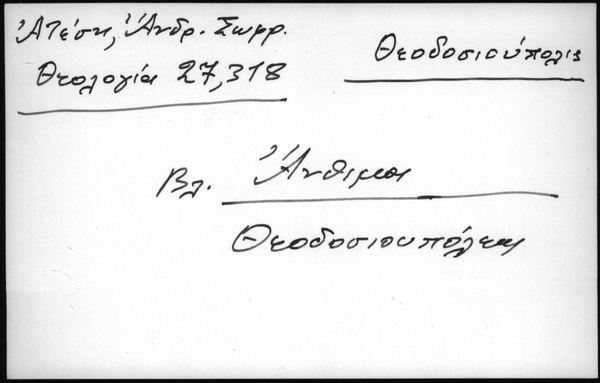 Ἀτέση, Ἀνδρ. Σωφρ.
Θεολογία 27,318
Θεοδοσιούπολις
Βλ. Ἄνθιμοι
Θεοδοσιουπόλεως